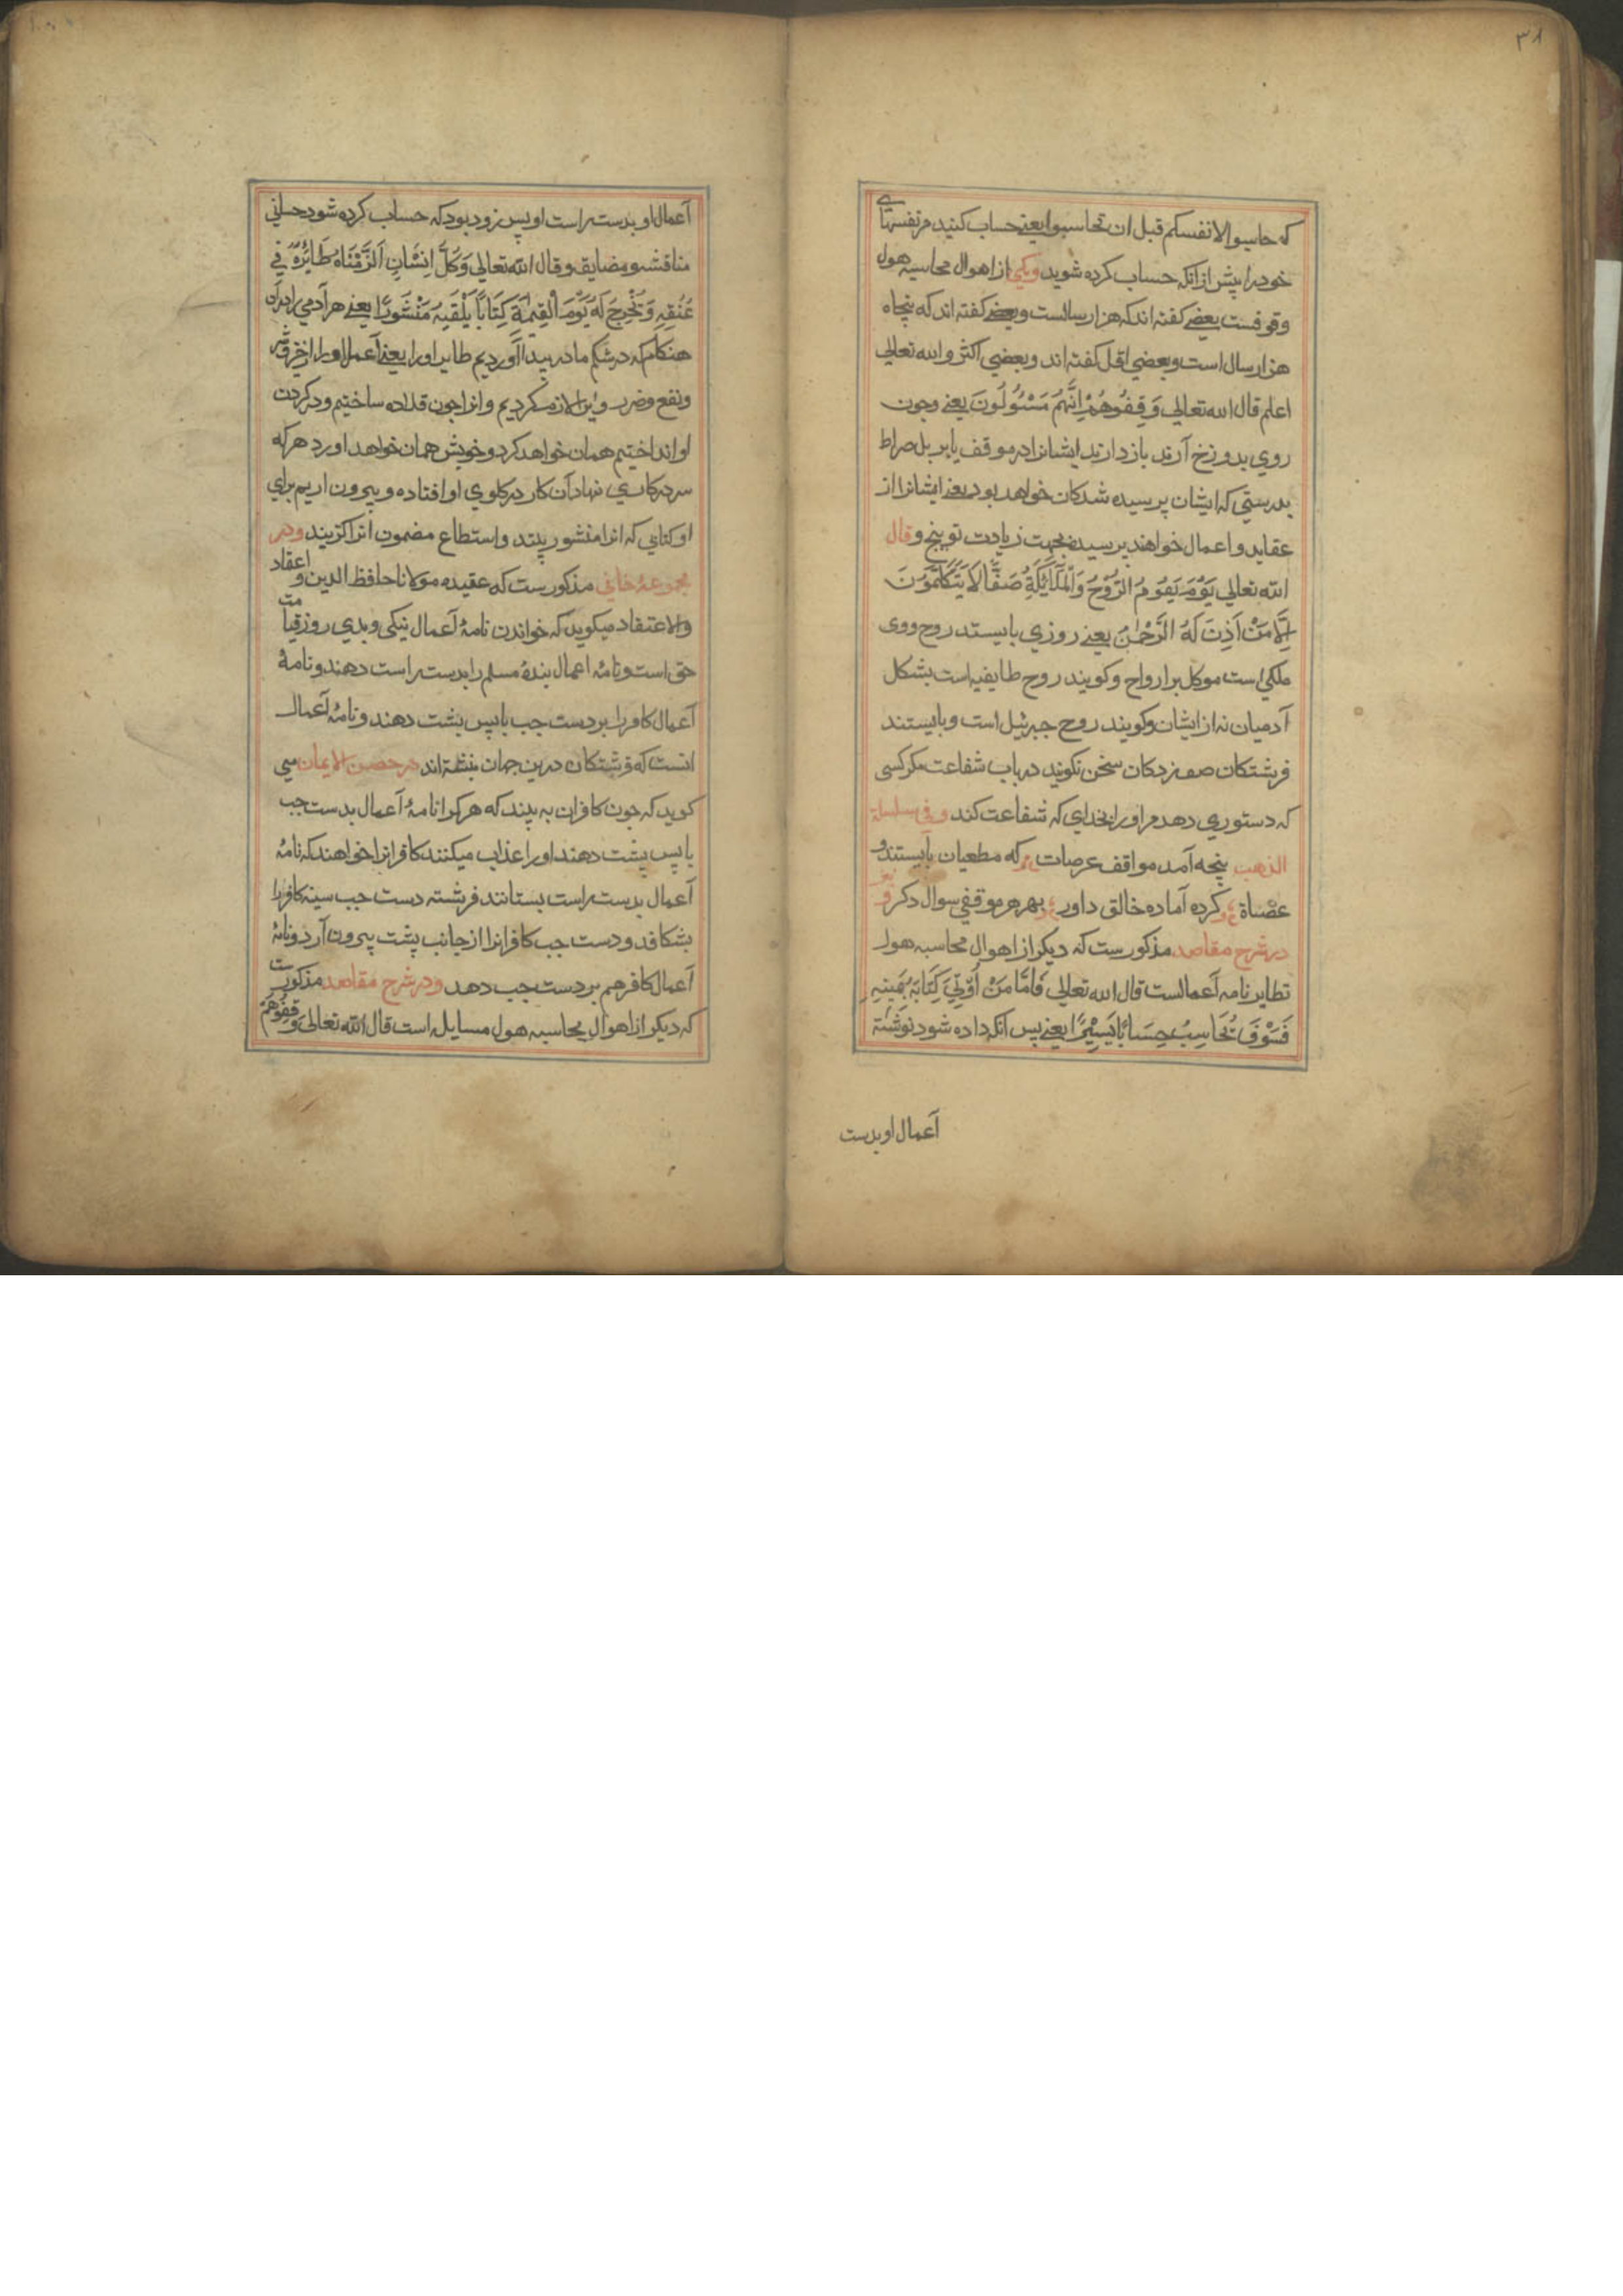 ۳۸
که حاسبوا لانفسکم قبل ان تحاسبوا یعنے حساب کنید مر نفسهای
خود را پیش از انکه حساب کرده شوید ویکی از اهوال محاسبه هول
وقوفست بعضے کفته اند که هزار سالست وبعضے کفته اند که پنجاه
هزار سال است وبعضی اقل کفته اند وبعضی اکثر والله تعالی
اعلم قال الله تعالی وَقِفُوهُمْ اِنَّهُمْ مَسْئُولُونَ یعنے وچون
روی بدوزخ آرند باز دارند ایشانرا در موقف یا بر پل صراط
بدرستی که ایشان پرسیده شدکان خواهد بود یعنے ایشانرا از
عقاید واعمال خواهند پرسید بجهت زیادت توبیخ وقال
الله تعالی یَوْمَ یَقُومُ الرُّوْحُ وَالْمَلَآئِکَةُ صَفًّا لَا یَتَکَلَّمُوْنَ
اِلَّا مَنْ اَذِنَ لَهُ الرَّحْمٰنُ یعنے روزی بایستد روح ووی
ملکی است موکل بر ارواح وکویند روح طایفه است بشکل
آدمیان نه از ایشان وکویند روح جبرئیل است وبایستند
فرشتکان صف زدکان سخن نکویند در باب شفاعت مکر کسی
که دستوری دهد مر او را خدای که شفاعت کند وفی سلسلة
الذهب پنجه آمد مواقف عرصات که مطعیان بایستند و
عصاة کرده آماده خالق داور بهر هر موقفی سوال دکر
در شرح مقاصد مذکورست که دیکر از اهوال محاسبه هول
تطایر نامه آعمالست قال الله تعالی فَاَمَّا مَنْ اُوْتِیَ کِتَابَهُ بِیَمِیْنِهِ
فَسَوْفَ یُحَاسِبُ حِسَابًا یَسِیْرًا یعنے پس انکه داده شود نوشته
آعمال او بدست
آعمال او بدست راست او پس زود بود که حساب کرده شود حسابی
مناقشه ومضایقه وقال الله تعالی وَکُلَّ اِنْسَانٍ اَلْزَمْنَاهُ طَائِرَهُ فِی
عُنُقِهِ وَنُخْرِجُ لَهُ یَوْمَ الْقِیٰمَةِ کِتَابًا یَلْقٰیهُ مَنْشُورًا یعنے هر آدمی را دران
هنکام که در شکم مادر پیدا آوردیم طایر او را یعنے آعمال او را از خیر وشر
ونفع وضرر واین لازم کردیم وانرا چون قلاده ساختیم ودر کردن
او انداختیم همان خواهد کرد وخویش همان خواهد اورد هر که
سر در کاری نهاد آن کار در کلوی او افتاده وبیرون اریم برای
او کتابی که انرا منشور بیند واستطاع مضمون انرا کزیند ودر
مجموعهٔ خانی مذکورست که عقیده مولانا حافظ الدین و اعتقاد
والاعتقاد میکوید که خواندن نامهٔ آعمال نیکی وبدی روز قیامت
حق است ونامهٔ اعمال بندهٔ مسلم را بدست راست دهند ونامهٔ
آعمال کافر را بر دست چپ یا پس پشت دهند ونامهٔ آعمال
انست که فرشتکان درین جهان بنشته اند در حصن الایمان می
کوید که چون کافران به بینند که هر کرا نامهٔ آعمال بدست چپ
یا پس پشت دهند او را عذاب میکنند کافرانرا خواهند که نامهٔ
آعمال بدست راست بستانند فرشته دست چپ سینه کافر را
بشکافد ودست چپ کافرانرا از جانب پشت بیرون آرد ونامهٔ
آعمال کافر هم بر دست چپ دهد ودر شرح مقاصد مذکورست
که دیکر از اهوال محاسبه هول مسایله است قال الله تعالی وَقِفُوْهُمْ